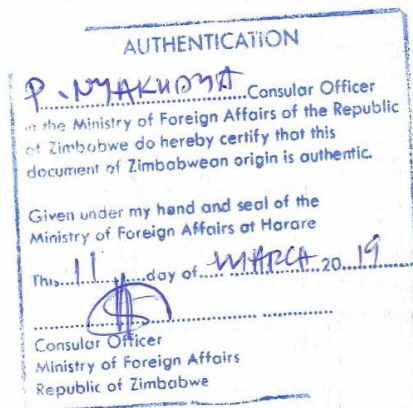 AUTHENTICATION
P. NYAKUDYA Consular Officer
in the Ministry of Foreign Affairs of the Republic
of Zimbabwe do hereby certify that this
document of Zimbabwean origin is authentic.
Given under my hand and seal of the
Ministry of Foreign Affairs at Harare
This 11 day of MARCH 2019
Consular Officer
Ministry of Foreign Affairs
Republic of Zimbabwe